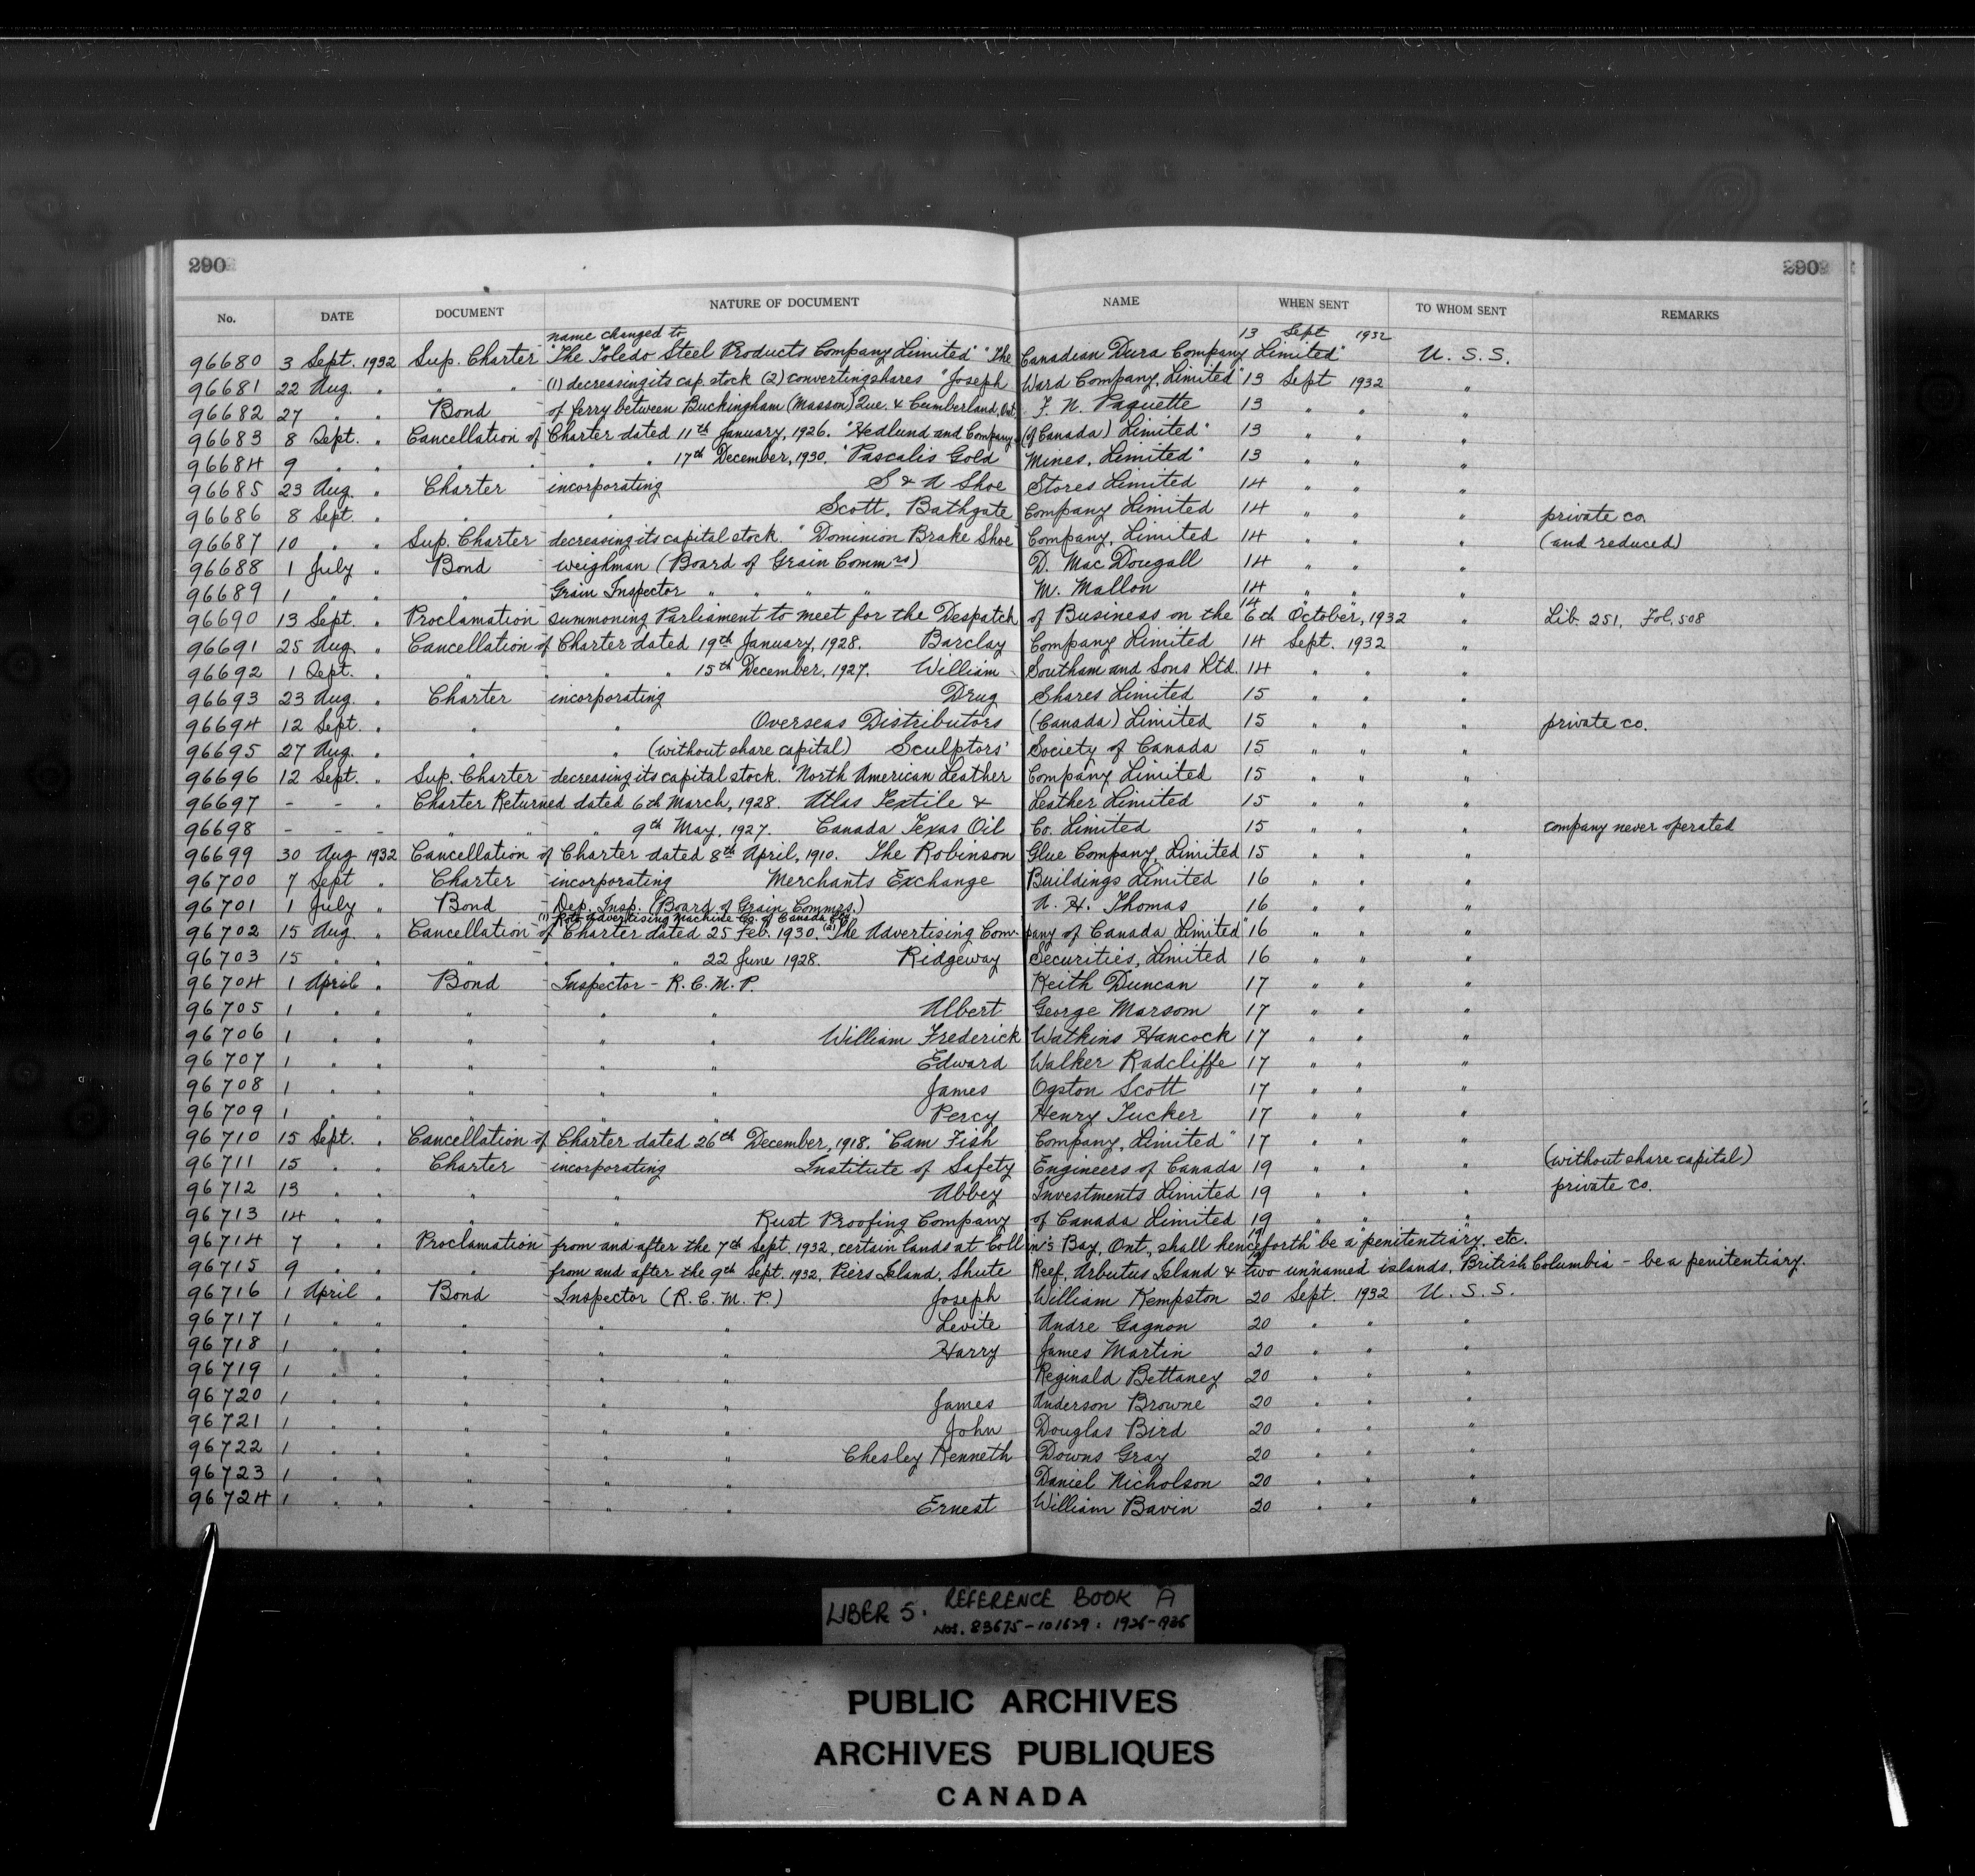 290 290
No. DATE DOCUMENT NATURE OF DOCUMENT NAME WHEN SENT TO WHOM SENT REMARKS
name changed to 13 Sept 1932
96680 3 Sept. 1932 Sup. Charter "The Toledo Steel Products Company Limited" "The Canadian Dura Company Limited" U.S.S.
96681 22 Aug. " " " (1) decreasing its cap. stock (2) converting shares "Joseph Ward Company, Limited" 13 Sept 1932 "
96682 27 " " Bond of ferry between Buckingham (Masson) Que. & Cumberland, Ont. F. N. Paquette 13 " " "
96683 8 Sept. " Cancellation of Charter dated 11th January, 1926. "Hedlund and Company (of Canada) Limited" 13 " " "
96684 9 " " " " " " 17th December, 1930. "Pascalis Gold Mines, Limited" 13 " " "
96685 23 Aug. " Charter incorporating S & A Shoe Stores Limited 14 " " "
96686 8 Sept. " " " Scott, Bathgate Company Limited 14 " " " private co.
96687 10 " " Sup. Charter decreasing its capital stock. "Dominion Brake Shoe Company, Limited 14 " " " (and reduced)
96688 1 July " Bond weighman (Board of Grain Commrs) D. MacDougall 14 " " "
96689 1 " " " Grain Inspector " " " " M. Mallon 14 " " "
14 " "
96690 13 Sept. " Proclamation summoning Parliament to meet for the Despatch of Business on the 6th October, 1932 " Lib. 251, Fol. 508
96691 25 Aug. " Cancellation of Charter dated 19th January, 1928. Barclay Company Limited 14 Sept. 1932 "
96692 1 Sept. " " " " " 15th December, 1927. William Southam and Sons Ltd. 14 " " "
96693 23 Aug. " Charter incorporating Drug Shares Limited 15 " " "
96694 12 Sept. " " " Overseas Distributors (Canada) Limited 15 " " " private co.
96695 27 Aug. " " " (without share capital) Sculptors' Society of Canada 15 " " "
96696 12 Sept. " Sup. Charter decreasing its capital stock. "North American Leather Company Limited 15 " " "
96697 - - " Charter Returned dated 6th March, 1928. Atlas Textile & Leather Limited 15 " " "
96698 - - - " " " 9th May, 1927. Canada Texas Oil Co. Limited 15 " " " company never operated
96699 30 Aug 1932 Cancellation of Charter dated 8th April, 1910. The Robinson Glue Company, Limited 15 " " "
96700 7 Sept " Charter incorporating Merchants Exchange Buildings Limited 16 " " "
96701 1 July " Bond Dep. Insp. (Board of Grain Commrs.) A. H. Thomas 16 " " "
(1) Roto Advertising Machine Co. of Canada Ltd.
96702 15 Aug. " Cancellation of Charter dated 25 Feb. 1930. (2) "The Advertising Company of Canada Limited" 16 " " "
96703 15 " " " " " " 22 June 1928. Ridgeway Securities, Limited 16 " " "
96704 1 April " Bond Inspector - R.C.M.P. Keith Duncan 17 " " "
96705 1 " " " " " Albert George Marsom 17 " " "
96706 1 " " " " " William Frederick Watkins Hancock 17 " " "
96707 1 " " " " " Edward Walker Radcliffe 17 " " "
96708 1 " " " " " James Ogston Scott 17 " " "
96709 1 " " " " " Percy Henry Tucker 17 " " "
96710 15 Sept. " Cancellation of Charter dated 26th December, 1918. "Cam Fish Company, Limited" 17 " " "
96711 15 " " Charter incorporating Institute of Safety Engineers of Canada 19 " " " (without share capital)
96712 13 " " " " Abbey Investments Limited 19 " " " private co.
96713 14 " " " " Rust Proofing Company of Canada Limited 19 " " "
96714 7 " " Proclamation from and after the 7th Sept. 1932, certain lands at Collin's Bay, Ont., shall henceforth be a penitentiary, etc.
96715 9 " " " from and after the 9th Sept. 1932, Piers Island, Shute Reef, Arbutus Island & two unnamed islands, British Columbia - be a penitentiary.
96716 1 April " Bond Inspector (R.C.M.P.) Joseph William Kempston 20 Sept. 1932 U.S.S.
96717 1 " " " " " Levite Andre Gagnon 20 " " "
96718 1 " " " " " Harry James Martin 20 " " "
96719 1 " " " " " Reginald Bettaney 20 " " "
96720 1 " " " " " James Anderson Browne 20 " " "
96721 1 " " " " " John Douglas Bird 20 " " "
96722 1 " " " " " Chesley Kenneth Downs Gray 20 " " "
96723 1 " " " " " Daniel Nicholson 20 " " "
96724 1 " " " " " Ernest William Bavin 20 " " "
LIBER 5. REFERENCE BOOK A
NOS. 83675-101629: 1926-1936
PUBLIC ARCHIVES
ARCHIVES PUBLIQUES
CANADA